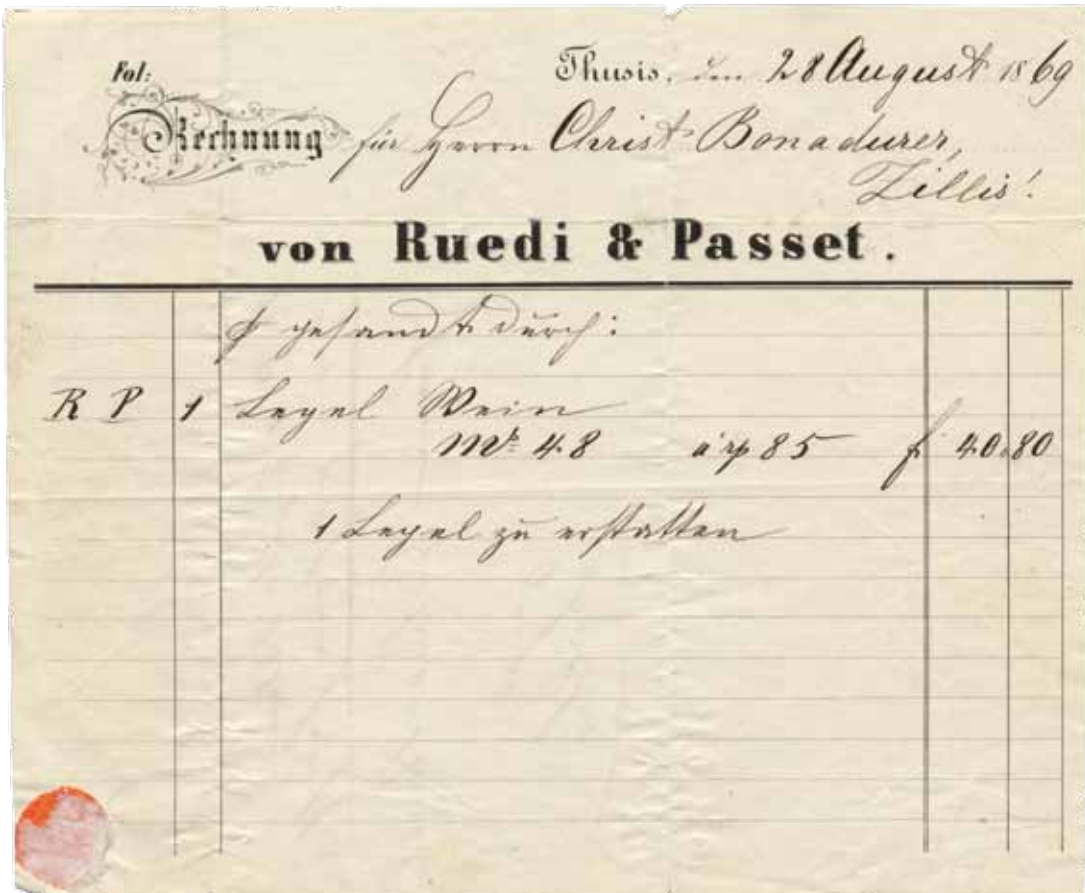 Fol:
Thusis, den 28 August 1869
Rechnung für Herrn Christ Bonadurer,
Zillis!
von Ruedi & Passet.
gesandt durch:
R P 1 Legel Wein
Ms 48 à rp 85 f 40.80
1 Legel zu erstatten